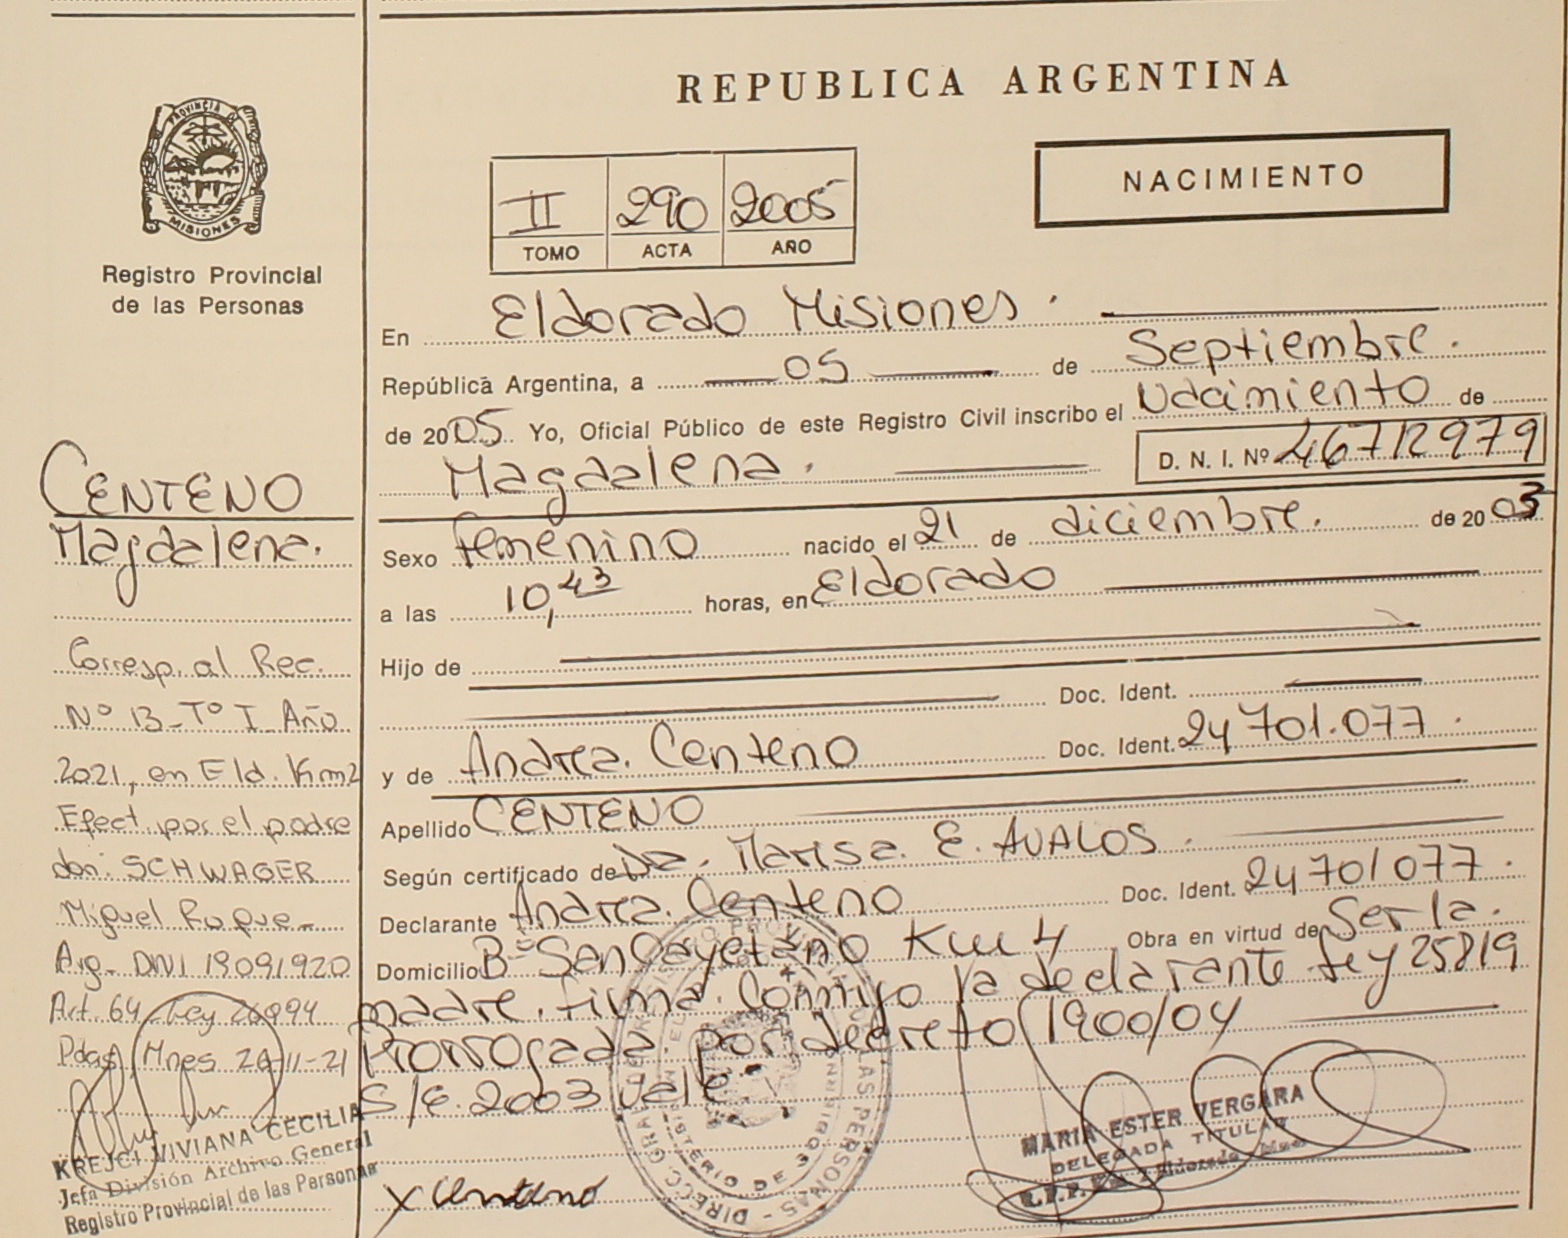 REPUBLICA ARGENTINA
PROVINCIA
MISIONES
Registro Provincial
de las Personas
II 290 2005
TOMO ACTA AÑO
NACIMIENTO
En Eldorado Misiones.
República Argentina, a 05 de Septiembre.
de 2005 Yo, Oficial Público de este Registro Civil inscribo el Nacimiento de
Magdalena. D. N. I. Nº 46712979
Sexo femenino nacido el 21 de diciembre. de 2003
a las 10,43 horas, en Eldorado
Hijo de
Doc. Ident.
y de Andrea. Centeno Doc. Ident. 24701.077.
Apellido CENTENO
Según certificado de Dra. Marisa. E. AVALOS.
Declarante Andrea. Centeno Doc. Ident. 24701077.
Domicilio Bº San Cayetano Km 4 Obra en virtud de Ser la.
madre. firma. Conmigo la declarante Ley 25819
Prorrogada por decreto 1900/04
S/E. 2003 Vale.
X Centeno
MARIA ESTER VERGARA
DELEGADA TITULAR
CENTENO
Magdalena.
Corresp. al Rec.
Nº 13-Tº I Año
2021, en Eld. Km2
Efect. por el padre
don: SCHWAGER
Miguel Roque-
Arg. DNI 19091920
Art. 64 Ley 26994
Pdas, Mnes 26-11-21
KREJCI VIVIANA CECILIA
Jefa División Archivo General
Registro Provincial de las Personas